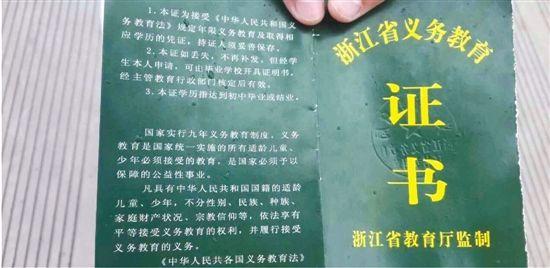 1.本证为接受《中华人民共和国义
务教育法》规定年限义务教育及取得相
应学历的凭证，持证人须妥善保存。
2.本证如丢失，不再补发，但经学
生本人申请，可由毕业学校开具证明书，
经主管教育行政部门核定后有效。
3.本证学历指达到初中毕业或结业。
国家实行九年义务教育制度，义务
教育是国家统一实施的所有适龄儿童、
少年必须接受的教育，是国家必须予以
保障的公益性事业。
凡具有中华人民共和国国籍的适龄
儿童、少年，不分性别、民族、种族、
家庭财产状况、宗教信仰等，依法享有
平等接受义务教育的权利，并履行接受
义务教育的义务。
《中华人民共各国义务教育法》
浙江省义务教育
证
书
浙江省教育厅监制